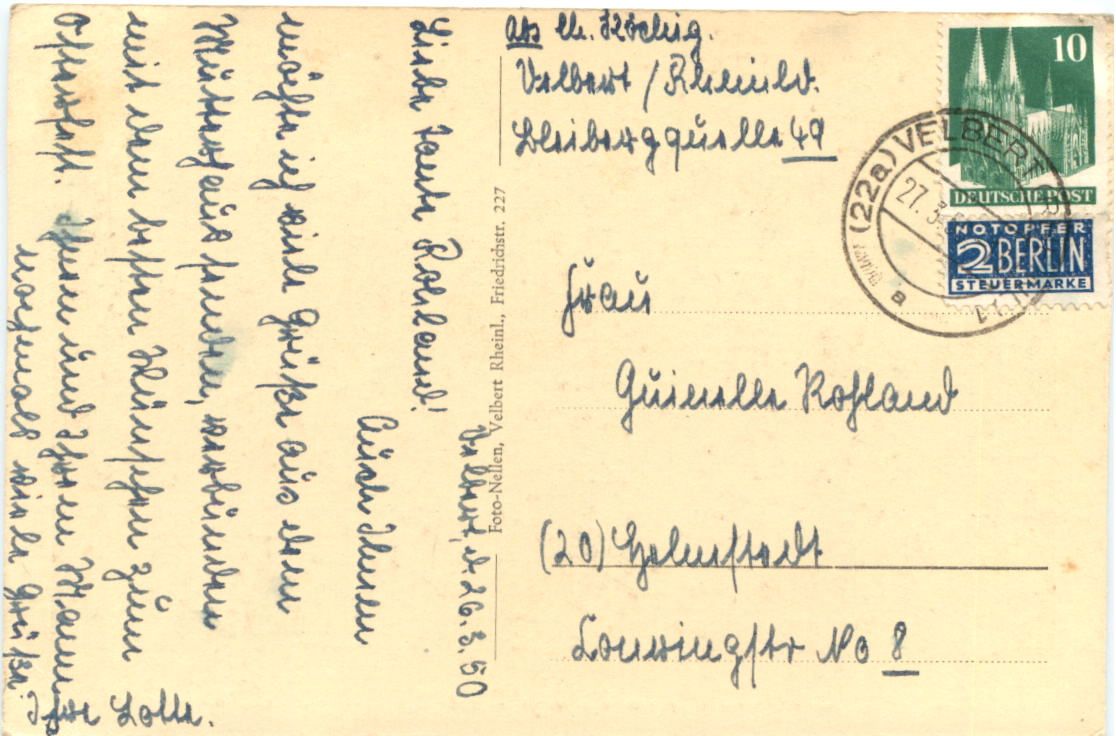 Velbert, d. 26.3.50
Liebe Tante Rohland!
Auch Ihnen
möchte ich viele Grüße aus dem
Mutterhaus senden, verbunden
mit den besten Wünschen zum
Osterfest. Ihnen und Ihrem Mann
nochmals viele Grüße.
Ihre Lotte.
Abs
Velbert / Rheinld.
Bleibergquelle 49
Foto-Nellen, Velbert Rheinl., Friedrichstr. 227
10
DEUTSCHE POST
NOTOPFER
2 BERLIN
STEUERMARKE
(22a) VELBERT
27. 3.
a
Frau
Rohland
(20) Helmstedt
No 8